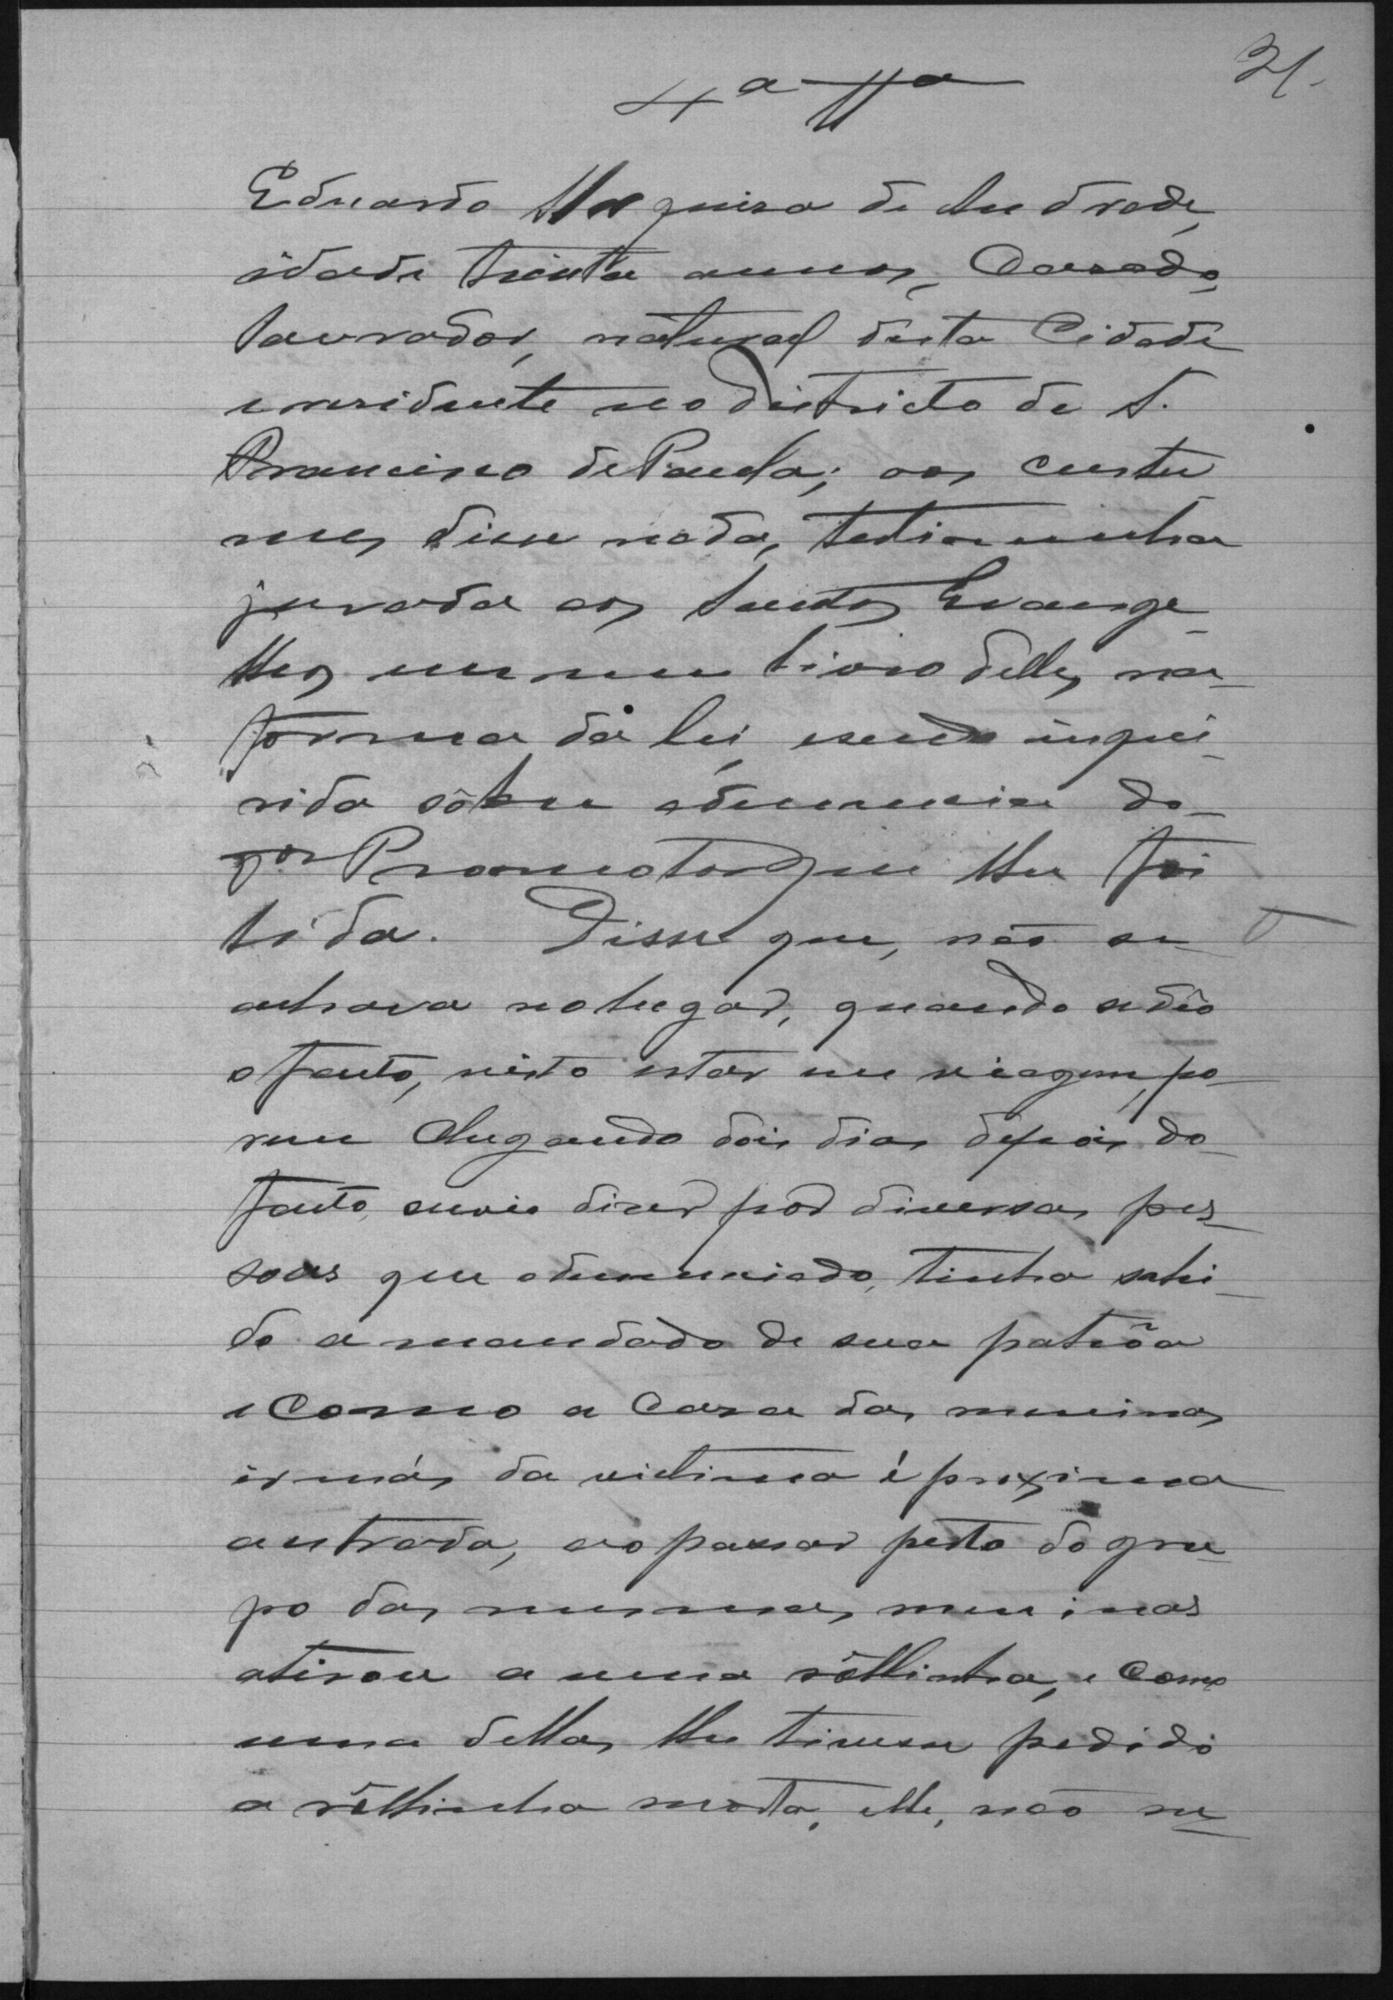 31.
4ª Tª
Eduardo Mesquisa de Andrade,
idade trinta annos, Casado,
lavrador, natural desta Cidade
e residente no districto de S.
Francisco de Paula; aos custu
mes disse nada, testimunha
jurada aos Santos Evange_
lhos em um livro delles, na_
forma da lei, e sendo inqui_
rida sôbre a denuncia do_
Promotor que lhe foi
lida. Disse que, não se_
achava no lugar, quando se dêo
o facto, visto estar em viagem, po_
rem chegando dois dias depois do_
facto, ouvio dizer por diversas pes_
soas que o denunciado, tinha sahi_
do a mandado de sua patrôa
e como a casa das meninas
irmás da victima é proxima
a estrada, ao passar perto do gru_
po das mesmas meninas
atirou a uma rôllinha, e como
uma dellas lhe tivesse pedido
a rôllinha morta, elle, não se_